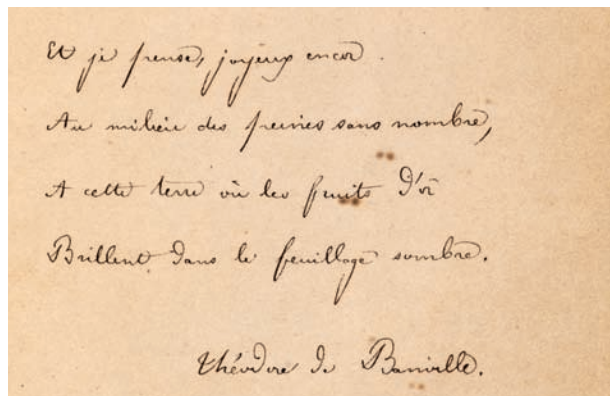 Et je pense, joyeux encor
Au milieu des peines sans nombre,
A cette terre où les fruits d'or
Brillent dans le feuillage sombre.
Théodore de Banville.